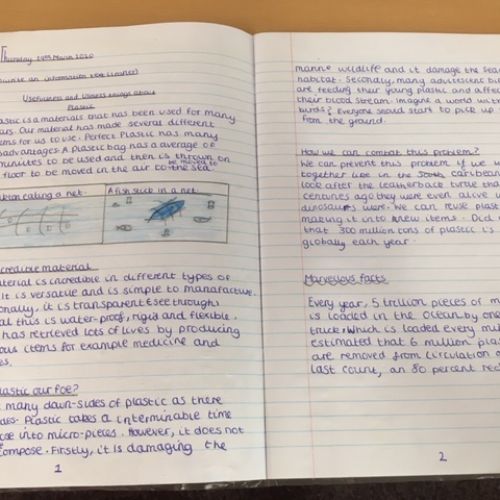 Thursday 19th March 2020
write an information text
Usefulness and Uselessness about
Plastic
lastic is a materials that has been used for many
ars. Our material has made several different
ems for us to use. Perfect Plastic has many
advantages. A plastic bag has a average of
minutes to be used and then is thrown on
floor to be moved in the air to the sea.
be moved to
eating a net.
A fish stuck in a net.
credible material
aterial is incredible in different types of
It is versatile and is simple to manufacture.
onally, it is transparent & see through
al this is water-proof, rigid and flexible.
has retrieved lots of lives by producing
ous items for example medicine and
es.
lastic our foe?
many down-sides of plastic as there
des. Plastic takes a interminable time
ose into micro-pieces. However, it does not
compose. Firstly, it is damaging the
1
marine wildlife and it damage the sea
habitat. Secondly, many adolescent bi
are feeding their young plastic and affec
their blood stream. Imagine a world with
birds? Everyone should start to pick up
from the ground.
How we can combat this problem?
We can prevent this problem if we w
together like in the South caribbean
look after the leatherback turtle that
centuries ago they were even alive w
dinosaurs were. We can reuse plast
making it into new items. Did
that 300 million tons of plastic is
globally each year.
Marvellous facts
Every year, 5 trillion pieces of m
is loaded in the ocean by one
truck. Which is loaded every mi
estimated that 6 million plas
are removed from circulation
last count, an 80 percent rec
2